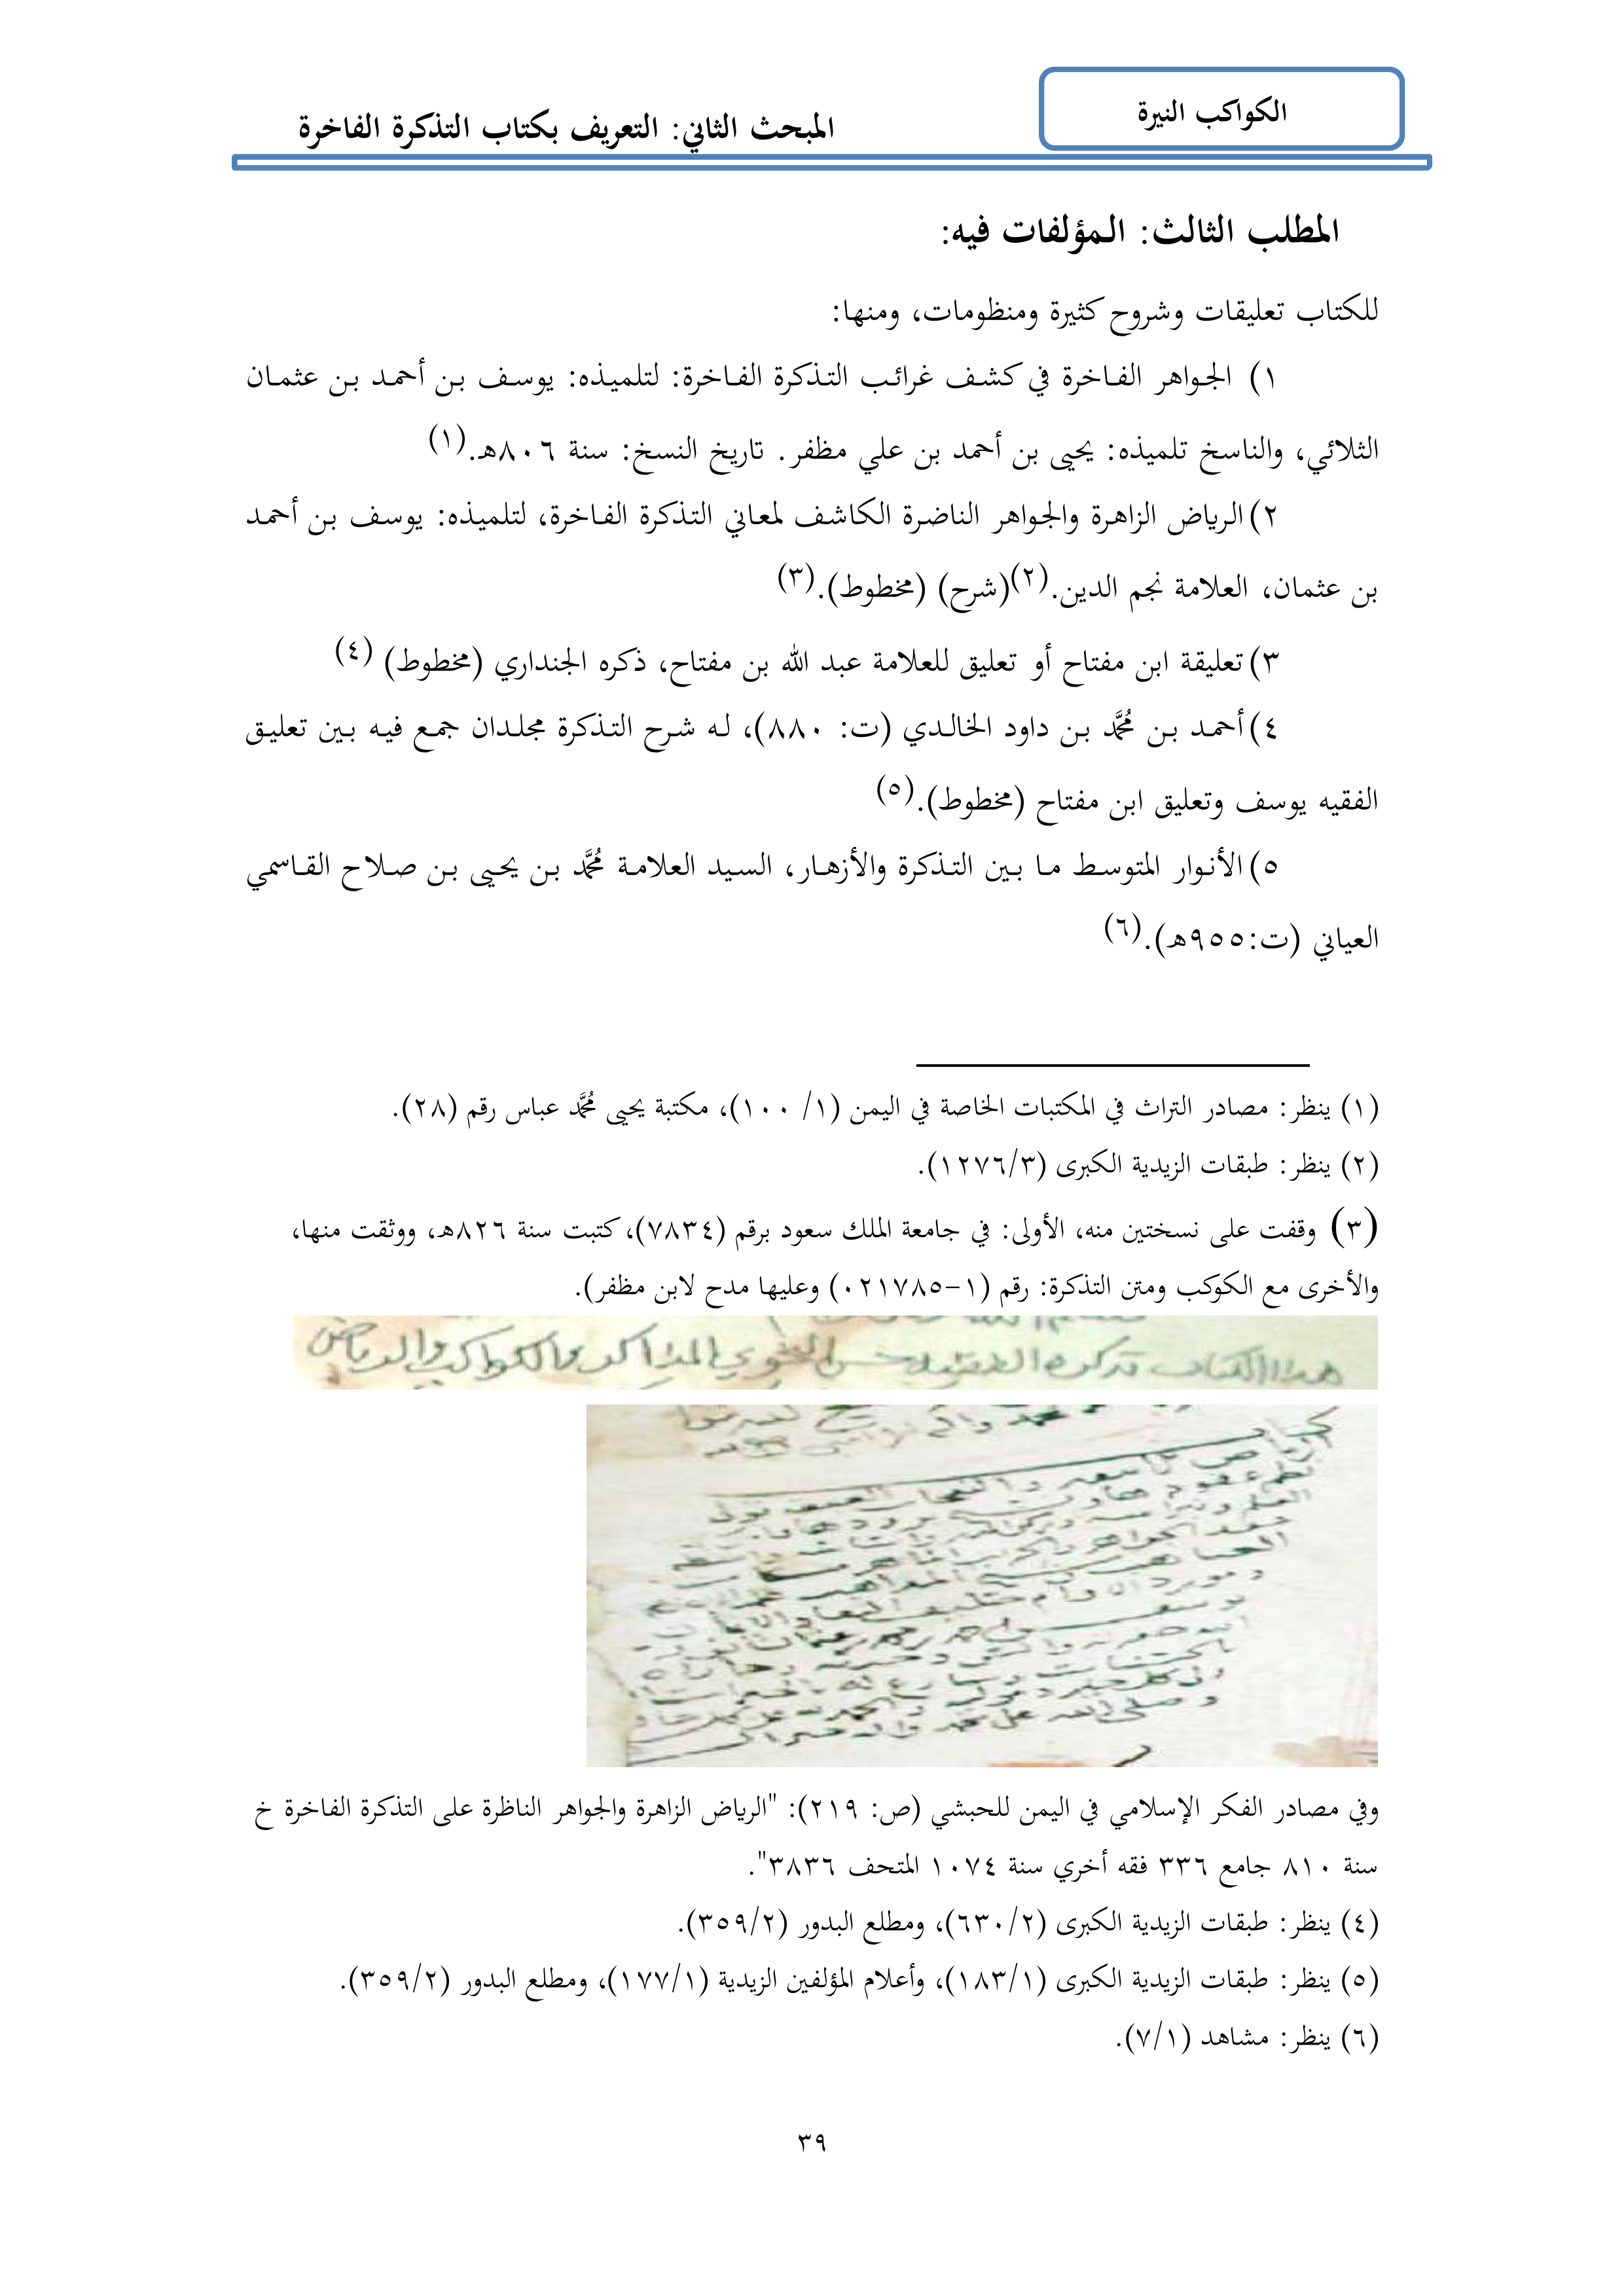 الكواكب النيرة
المبحث الثاني: التعريف بكتاب التذكرة الفاخرة
المطلب الثالث: المؤلفات فيه:
للكتاب تعليقات وشروح كثيرة ومنظومات، ومنها:
١) الجواهر الفاخرة في كشف غرائب التذكرة الفاخرة: لتلميذه: يوسف بن أحمد بن عثمان
الثلائي، والناسخ تلميذه: يحيى بن أحمد بن علي مظفر. تاريخ النسخ: سنة ٨٠٦هـ.(١)
٢) الرياض الزاهرة والجواهر الناضرة الكاشف لمعاني التذكرة الفاخرة، لتلميذه: يوسف بن أحمد
بن عثمان، العلامة نجم الدين.(٢)(شرح) (مخطوط).(٣)
٣) تعليقة ابن مفتاح أو تعليق للعلامة عبد الله بن مفتاح، ذكره الجنداري (مخطوط) (٤)
٤) أحمد بن مُحَّمد بن داود الخالدي (ت: ٨٨٠)، له شرح التذكرة مجلدان جمع فيه بين تعليق
الفقيه يوسف وتعليق ابن مفتاح (مخطوط).(٥)
٥) الأنوار المتوسط ما بين التذكرة والأزهار، السيد العلامة مُحَّمد بن يحيى بن صلاح القاسمي
العياني (ت:٩٥٥هـ).(٦)
(١) ينظر: مصادر التراث في المكتبات الخاصة في اليمن (١/ ١٠٠)، مكتبة يحيى مُحَّمد عباس رقم (٢٨).
(٢) ينظر: طبقات الزيدية الكبرى (١٢٧٦/٣).
(٣) وقفت على نسختين منه، الأولى: في جامعة الملك سعود برقم (٧٨٣٤)، كتبت سنة ٨٢٦هـ، ووثقت منها،
والأخرى مع الكوكب ومتن التذكرة: رقم (١-٠٢١٧٨٥) وعليها مدح لابن مظفر).
هذا الكتاب تذكرة الفقيه حسن النحوي المذاكر والكواكب والرياض
وفي مصادر الفكر الإسلامي في اليمن للحبشي (ص: ٢١٩): "الرياض الزاهرة والجواهر الناظرة على التذكرة الفاخرة خ
سنة ٨١٠ جامع ٣٣٦ فقه أخري سنة ١٠٧٤ المتحف ٣٨٣٦".
(٤) ينظر: طبقات الزيدية الكبرى (٦٣٠/٢)، ومطلع البدور (٣٥٩/٢).
(٥) ينظر: طبقات الزيدية الكبرى (١٨٣/١)، وأعلام المؤلفين الزيدية (١٧٧/١)، ومطلع البدور (٣٥٩/٢).
(٦) ينظر: مشاهد (٧/١).
٣٩